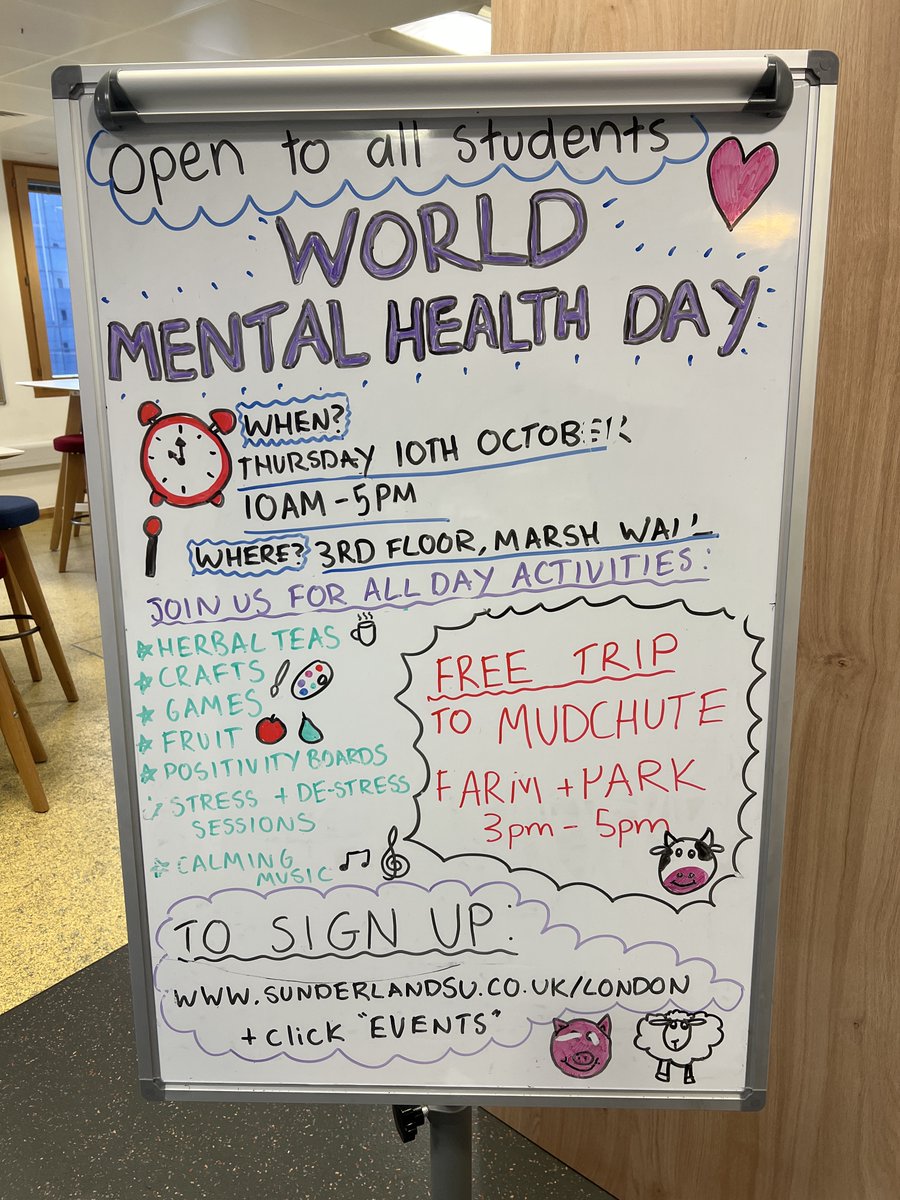 Open to all students
WORLD
MENTAL HEALTH DAY
WHEN?
THURSDAY 10TH OCTOBER
10AM - 5PM
WHERE? 3RD FLOOR, MARSH WALL
JOIN US FOR ALL DAY ACTIVITIES:
HERBAL TEAS
CRAFTS
GAMES
FRUIT
POSITIVITY BOARDS
STRESS + DE-STRESS
SESSIONS
CALMING
MUSIC
FREE TRIP
TO MUDCHUTE
FARM + PARK
3pm - 5pm
TO SIGN UP:
WWW.SUNDERLANDSU.CO.UK/LONDON
+ click "EVENTS"